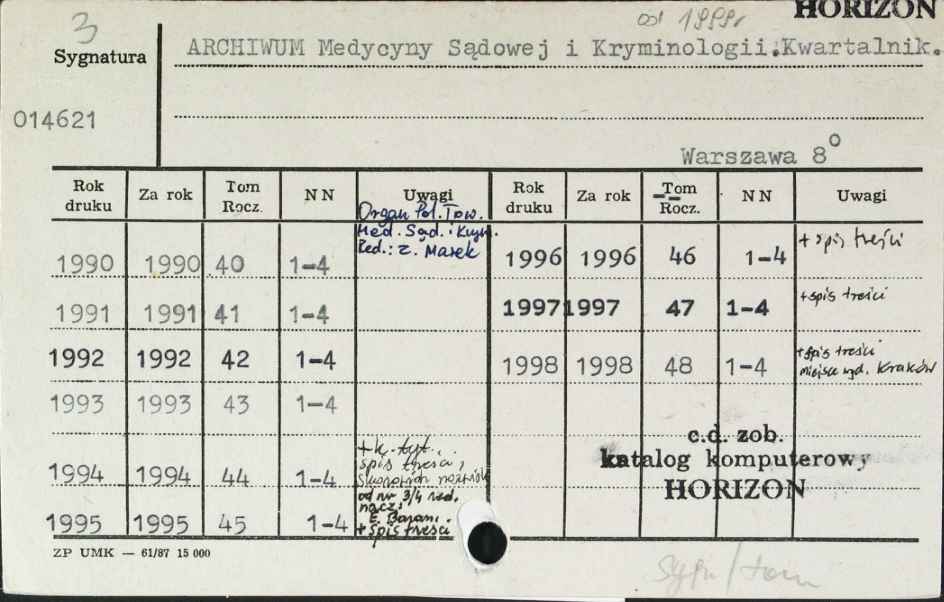 3
od 1999r
HORIZON
Sygnatura
ARCHIWUM Medycyny Sądowej i Kryminologii.Kwartalnik.
014621
Warszawa 8⁰
Rok druku Za rok Tom Rocz. NN Uwagi Rok druku Za rok Tom Rocz. NN Uwagi
Organ Pol. Tow.
Med. Sąd. i Krym.
Red.: Z. Marek
1990 1990 40 1-4
1991 1991 41 1-4
1992 1992 42 1-4
1993 1993 43 1-4
1994 1994 44 1-4
+ k. tyt.
spis treści,
od nr 3/4 red.
nacz.
E. Baran.
+ spis treści
1995 1995 45 1-4
1996 1996 46 1-4 + spis treści
1997 1997 47 1-4 + spis treści
1998 1998 48 1-4 + spis treści
miejsce wyd. Kraków
c.d. zob.
katalog komputerowy
HORIZON
ZP UMK — 61/87 15 000
sygn/tom